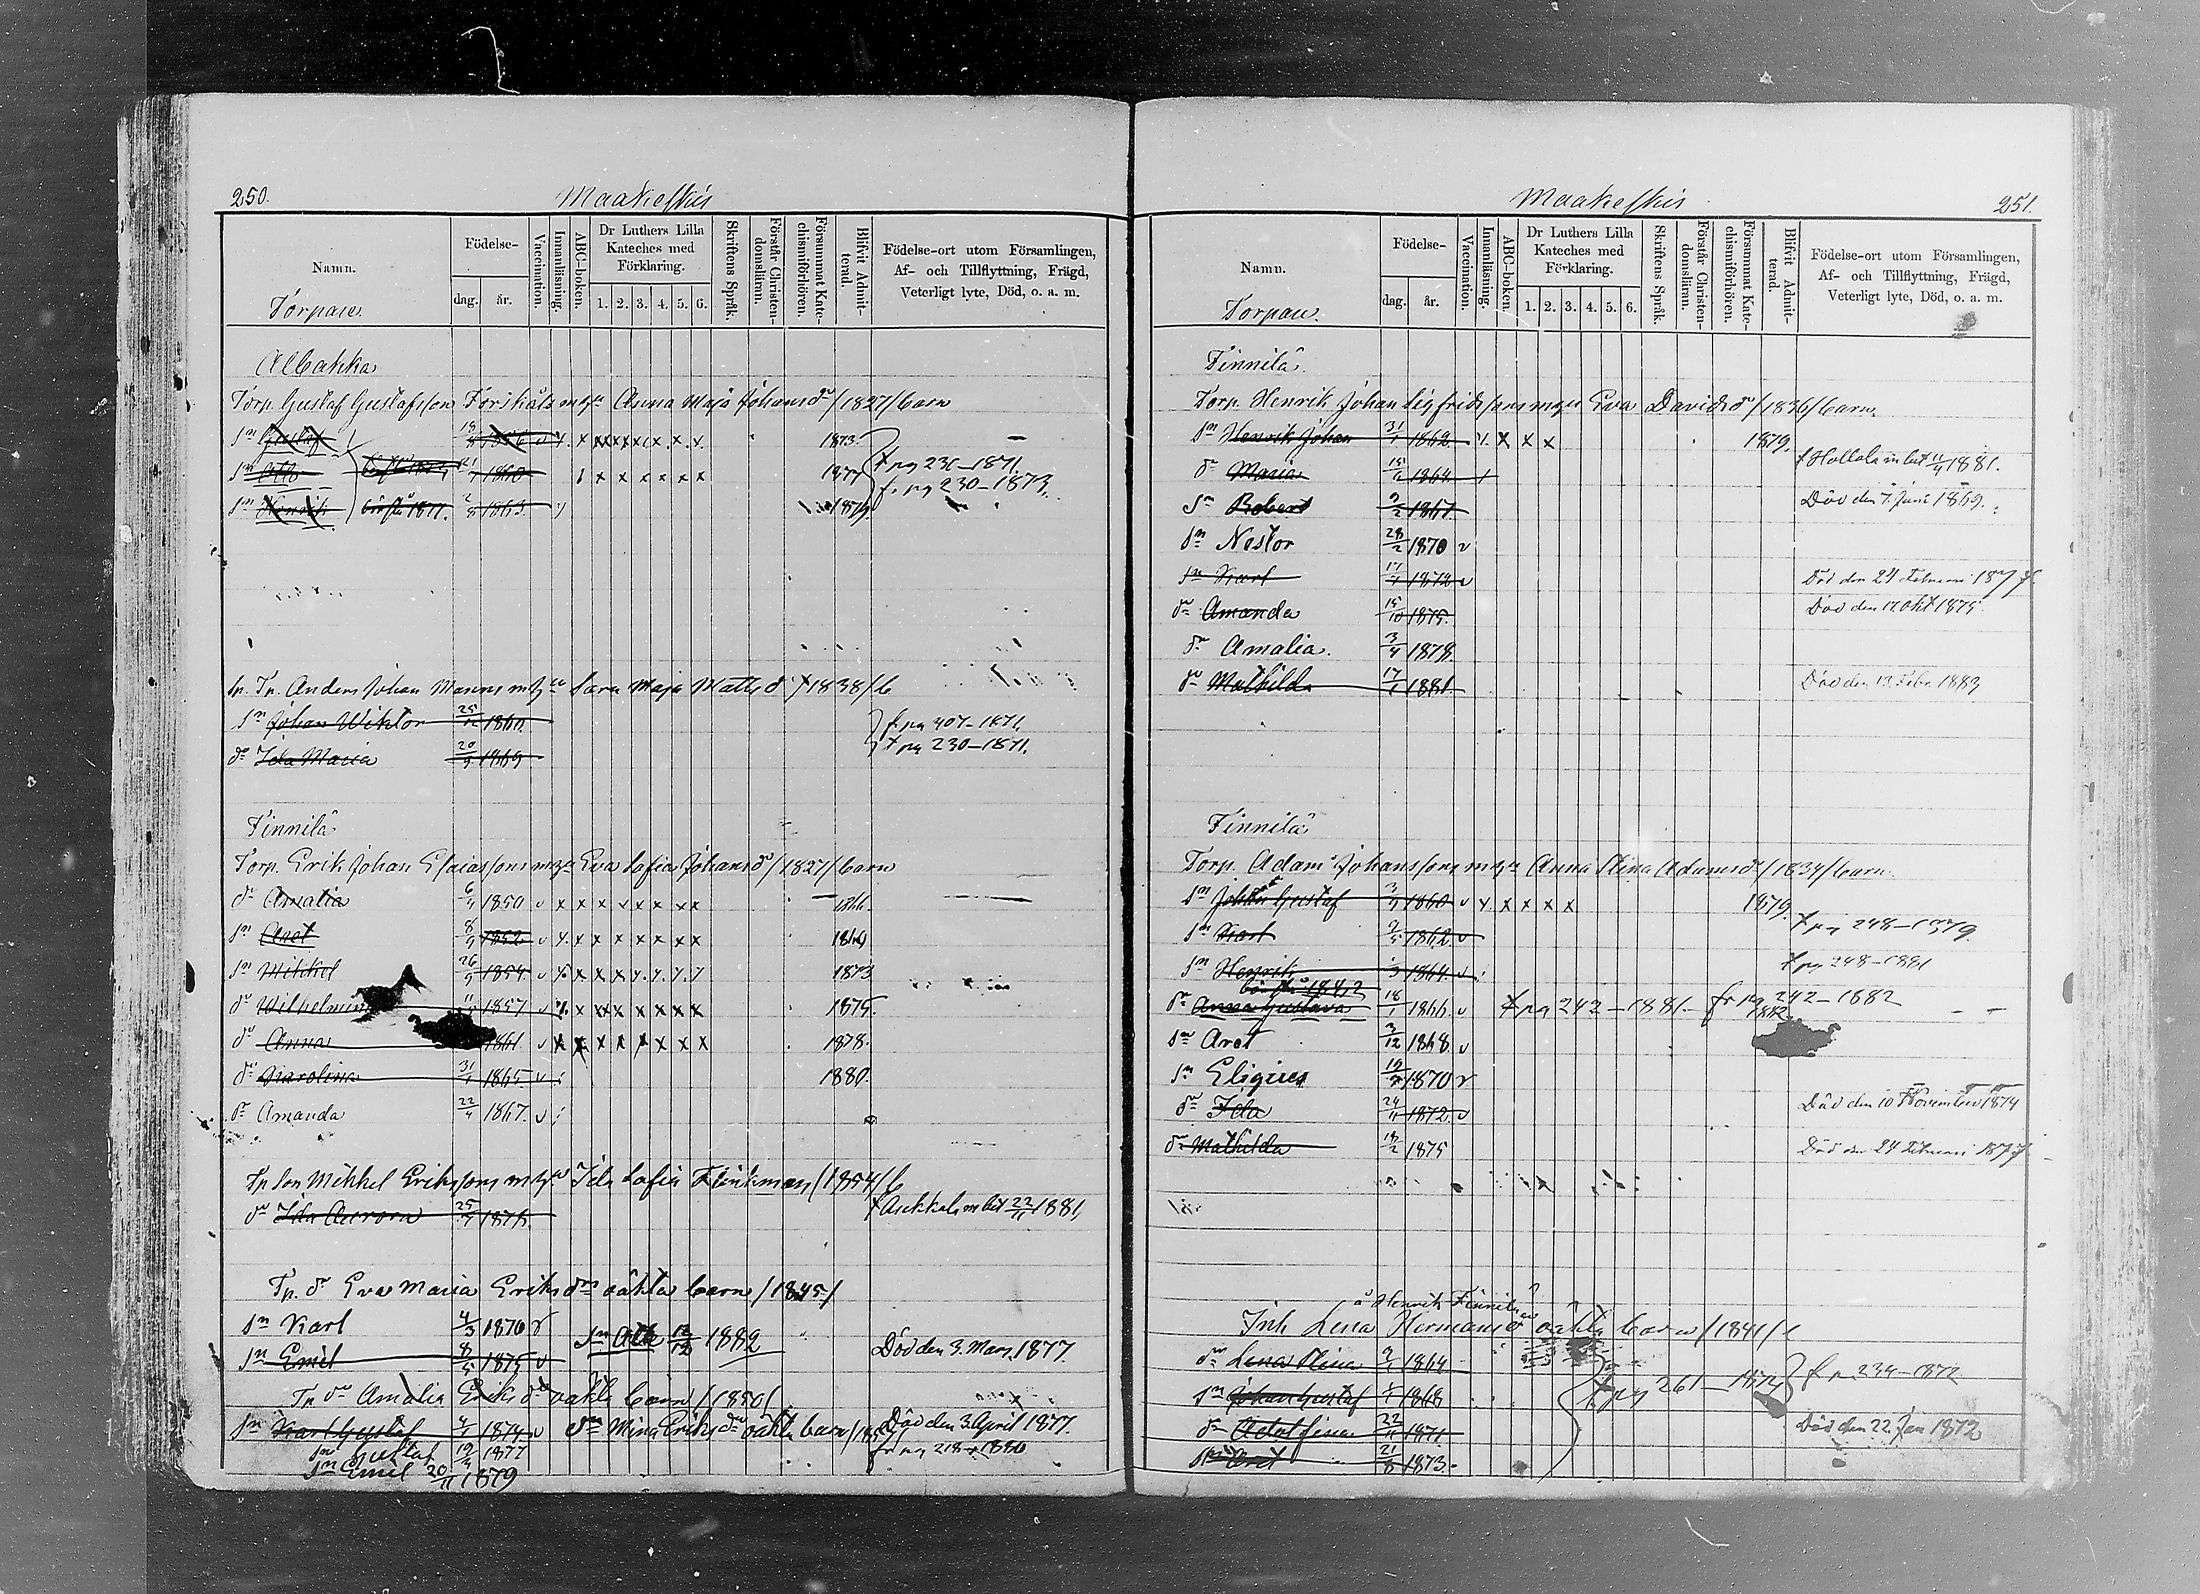 250.
Maakeskis
Namn.
Torpare
Födelse-
dag. år.
Vaccination.
Innanläsning.
ABC-boken.
Dr Luthers Lilla Kateches med Förklaring.
1. 2. 3. 4. 5. 6.
Skriftens Språk.
Förstår Christendomsläran.
Försummat Katechismiförhören.
Blifvit Admitterad.
Födelse-ort utom Församlingen, Af- och Tillflyttning, Frägd, Veterligt lyte, Död, o. a. m.
Albakka
Torp. Gustaf Gustafsson Forskåls m hu Anna Maja Johansdr /1827/ barn
sn Gustaf 18/8 1856 1873
sn Otto 1860 1877 t pg 236–1871.
f. pg 230–1873.
sn Henrik 2/8 1863 1879
Tp. Anders Johan Manns m hu Sara Maja Mattsdr /1838/ b
sn Johan Wiktor 1860 fr pg 407–1871.
dr Ida Maria 20/9 1869 t pg 230–1871.
Finnilä
Torp. Erik Johan Esaiassons m hu Eva Sofia Johansdr /1827/ barn
dr Amalia 6/4 1850 v x x x x x x x 1866.
sn Axel 8/9 1852 1869
sn Mikkel 26/9 1854 1873
dr Wilhelmina 1857 1875.
dr Anna 1861 1878.
dr Karolina 31/1 1865 1880.
dr Amanda 22/4 1867. v
Tp son Mikkel Erikssons m hu Ida Sofia Flinkman /1854/ b
dr Ida Aurora 1876 t Asikkala m bet 22/11 1881.
Tp. dr Eva Maria Eriksdrs oäkta barn /1845/
sn Karl 4/3 1870 v
sn Otto 1882
sn Emil 8/5 1875 v Död den 3. Mars 1877.
Tp dr Amalia Eriksdrs oäkta barn /1850/
sn Karl Gustaf 1874 v Död den 3. April 1877.
dr Mina Eriksdrs oäkta barn
fr pg 218–1880
sn Gustaf 1877
sn Emil 20/11 1879
251.
Maakeskis
Namn.
Torpare.
Födelse-
dag. år.
Vaccination.
Innanläsning.
ABC-boken.
Dr Luthers Lilla Kateches med Förklaring.
1. 2. 3. 4. 5. 6.
Skriftens Språk.
Förstår Christendomsläran.
Försummat Katechismiförhören.
Blifvit Admitterad.
Födelse-ort utom Församlingen, Af- och Tillflyttning, Frägd, Veterligt lyte, Död, o. a. m.
Finnilä.
Torp. Henrik Johan Sigfridssons m hu Eva Davidsdr /1836/ barn.
sn Henrik Johan 31/1 1862 x x x 1879.
t Hollola m bet 11/4 1881.
dr Maria 1864
sn Robert 9/2 1867 Död den 7. Juni 1869.
sn Nestor 28/2 1870 v
sn Karl 1872 v Död den 24 Februari 1877
dr Amanda 15/10 1875. Död den 17. Okt 1875.
dr Amalia. 3/4 1878
dr Mathilda 17/1 1881. Död den 13. Febr. 1883
Finnilä
Torp. Adam Johanssons m hu Anna Stina Adamsdr /1834/ barn.
sn Johan Gustaf 3/9 1860 v x x x x 1879.
t pg 248–1879.
sn Karl 9/5 1862 v
t pg 248–1881
sn Henrik 1864. v
dr Anna Gustava 18/1 1866. v t pg 242–1881– fr pg 242–1882
sn Axel 3/12 1868. v
sn Eligius 1870 v
dr Ida 24/11 1872. v Död den 10 November 1874
dr Mathilda 1875 Död den 24 Februari 1877
å Henrik Finnilä
Inh Lena Hermansdrs oäkta barn /1841/
dr Lena Stina 1864 fr pg 234–1872
sn Johan Gustaf 1868 t pg 261–
dr Adolfina 22/11 1871. Död den 22. Jan 1872
sn Axel 21/8 1873.